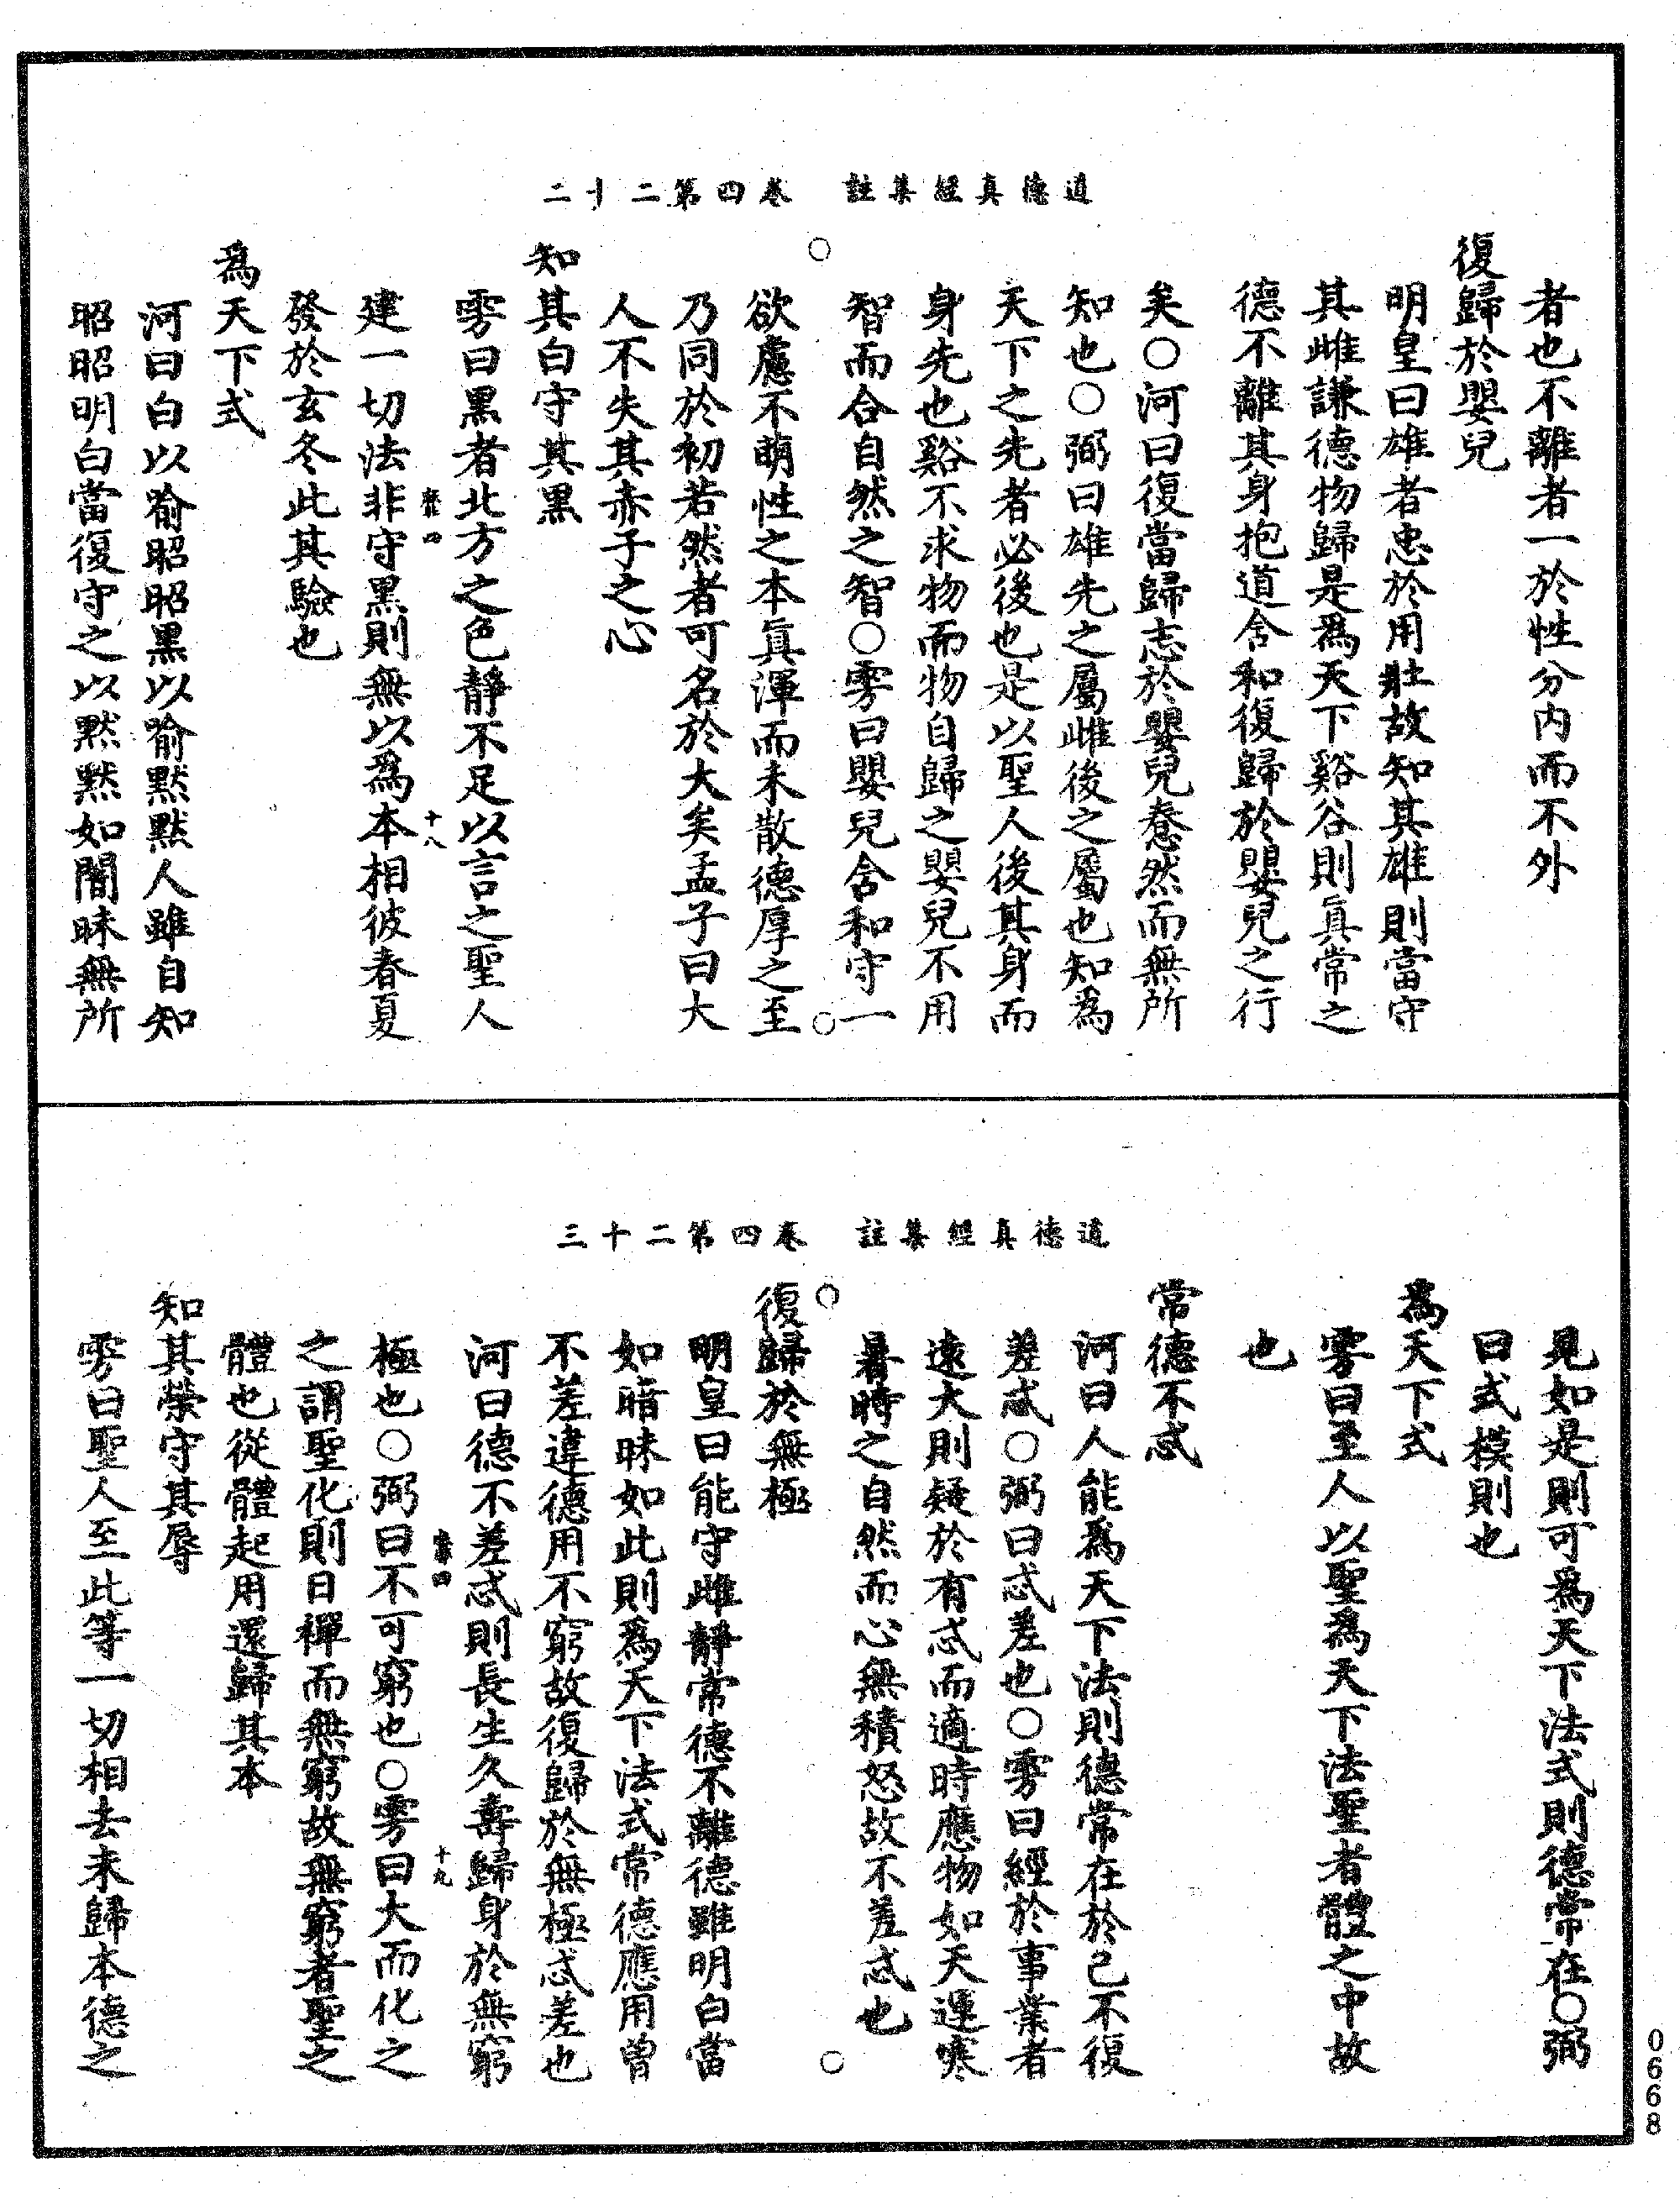 道德真經集註 卷四第二十二
者也不離者一於性分內而不外
復歸於嬰兒
明皇曰雄者忠於用壯故知其雄則當守
其雌謙德物歸是為天下谿谷則真常之
德不離其身抱道含和復歸於嬰兒之行
矣○河曰復當歸志於嬰兒惷然而無所
知也○弼曰雄先之屬雌後之屬也知為
天下之先者必後也是以聖人後其身而
身先也谿不求物而物自歸之嬰兒不用
智而合自然之智○雱曰嬰兒含和守一
欲慮不萌性之本真渾而未散德厚之至
乃同於初若然者可名於大矣孟子曰大
人不失其赤子之心
知其白守其黑
雱曰黑者北方之色靜不足以言之聖人
卷四 十八
建一切法非守黑則無以為本相彼春夏
發於玄冬此其驗也
為天下式
河曰白以喻昭昭黑以喻默默人雖自知
昭昭明白當復守之以默默如闇昧無所
道德真經集註 卷四第二十三
見如是則可為天下法式則德常在○弼
曰式模則也
為天下式
雱曰至人以聖為天下法聖者體之中故
也
常德不忒
河曰人能為天下法則德常在於己不復
差忒○弼曰忒差也○雱曰經於事業者
遠大則疑於有忒而適時應物如天運寒
暑時之自然而心無積怒故不差忒也
復歸於無極
明皇曰能守雌靜常德不離德雖明白當
如暗昧如此則為天下法式常德應用曾
不差違德用不窮故復歸於無極忒差也
河曰德不差忒則長生久壽歸身於無窮
卷四 十九
極也○弼曰不可窮也○雱曰大而化之
之謂聖化則日禪而無窮故無窮者聖之
體也從體起用還歸其本
知其榮守其辱
雱曰聖人至此等一切相去來歸本德之
0668